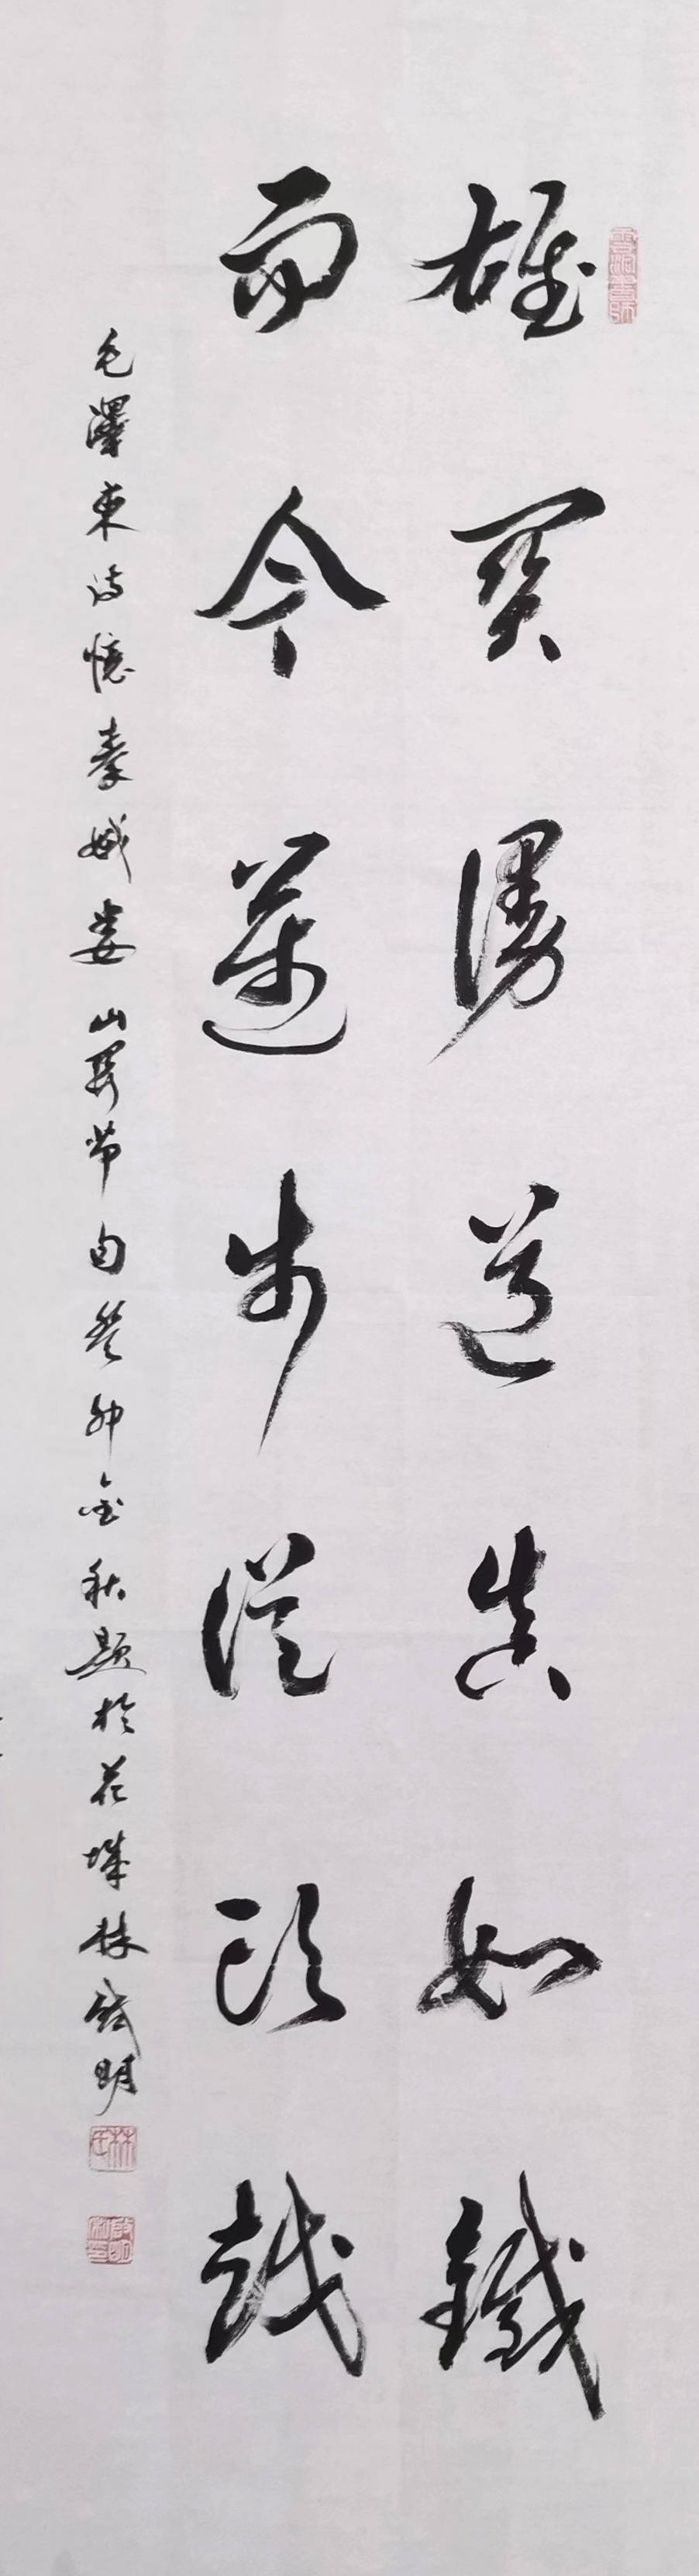 雄關漫道真如鐵
而今邁步從頭越
毛澤東詩憶秦娥娄山関节句癸卯金秋題於花城林啟明